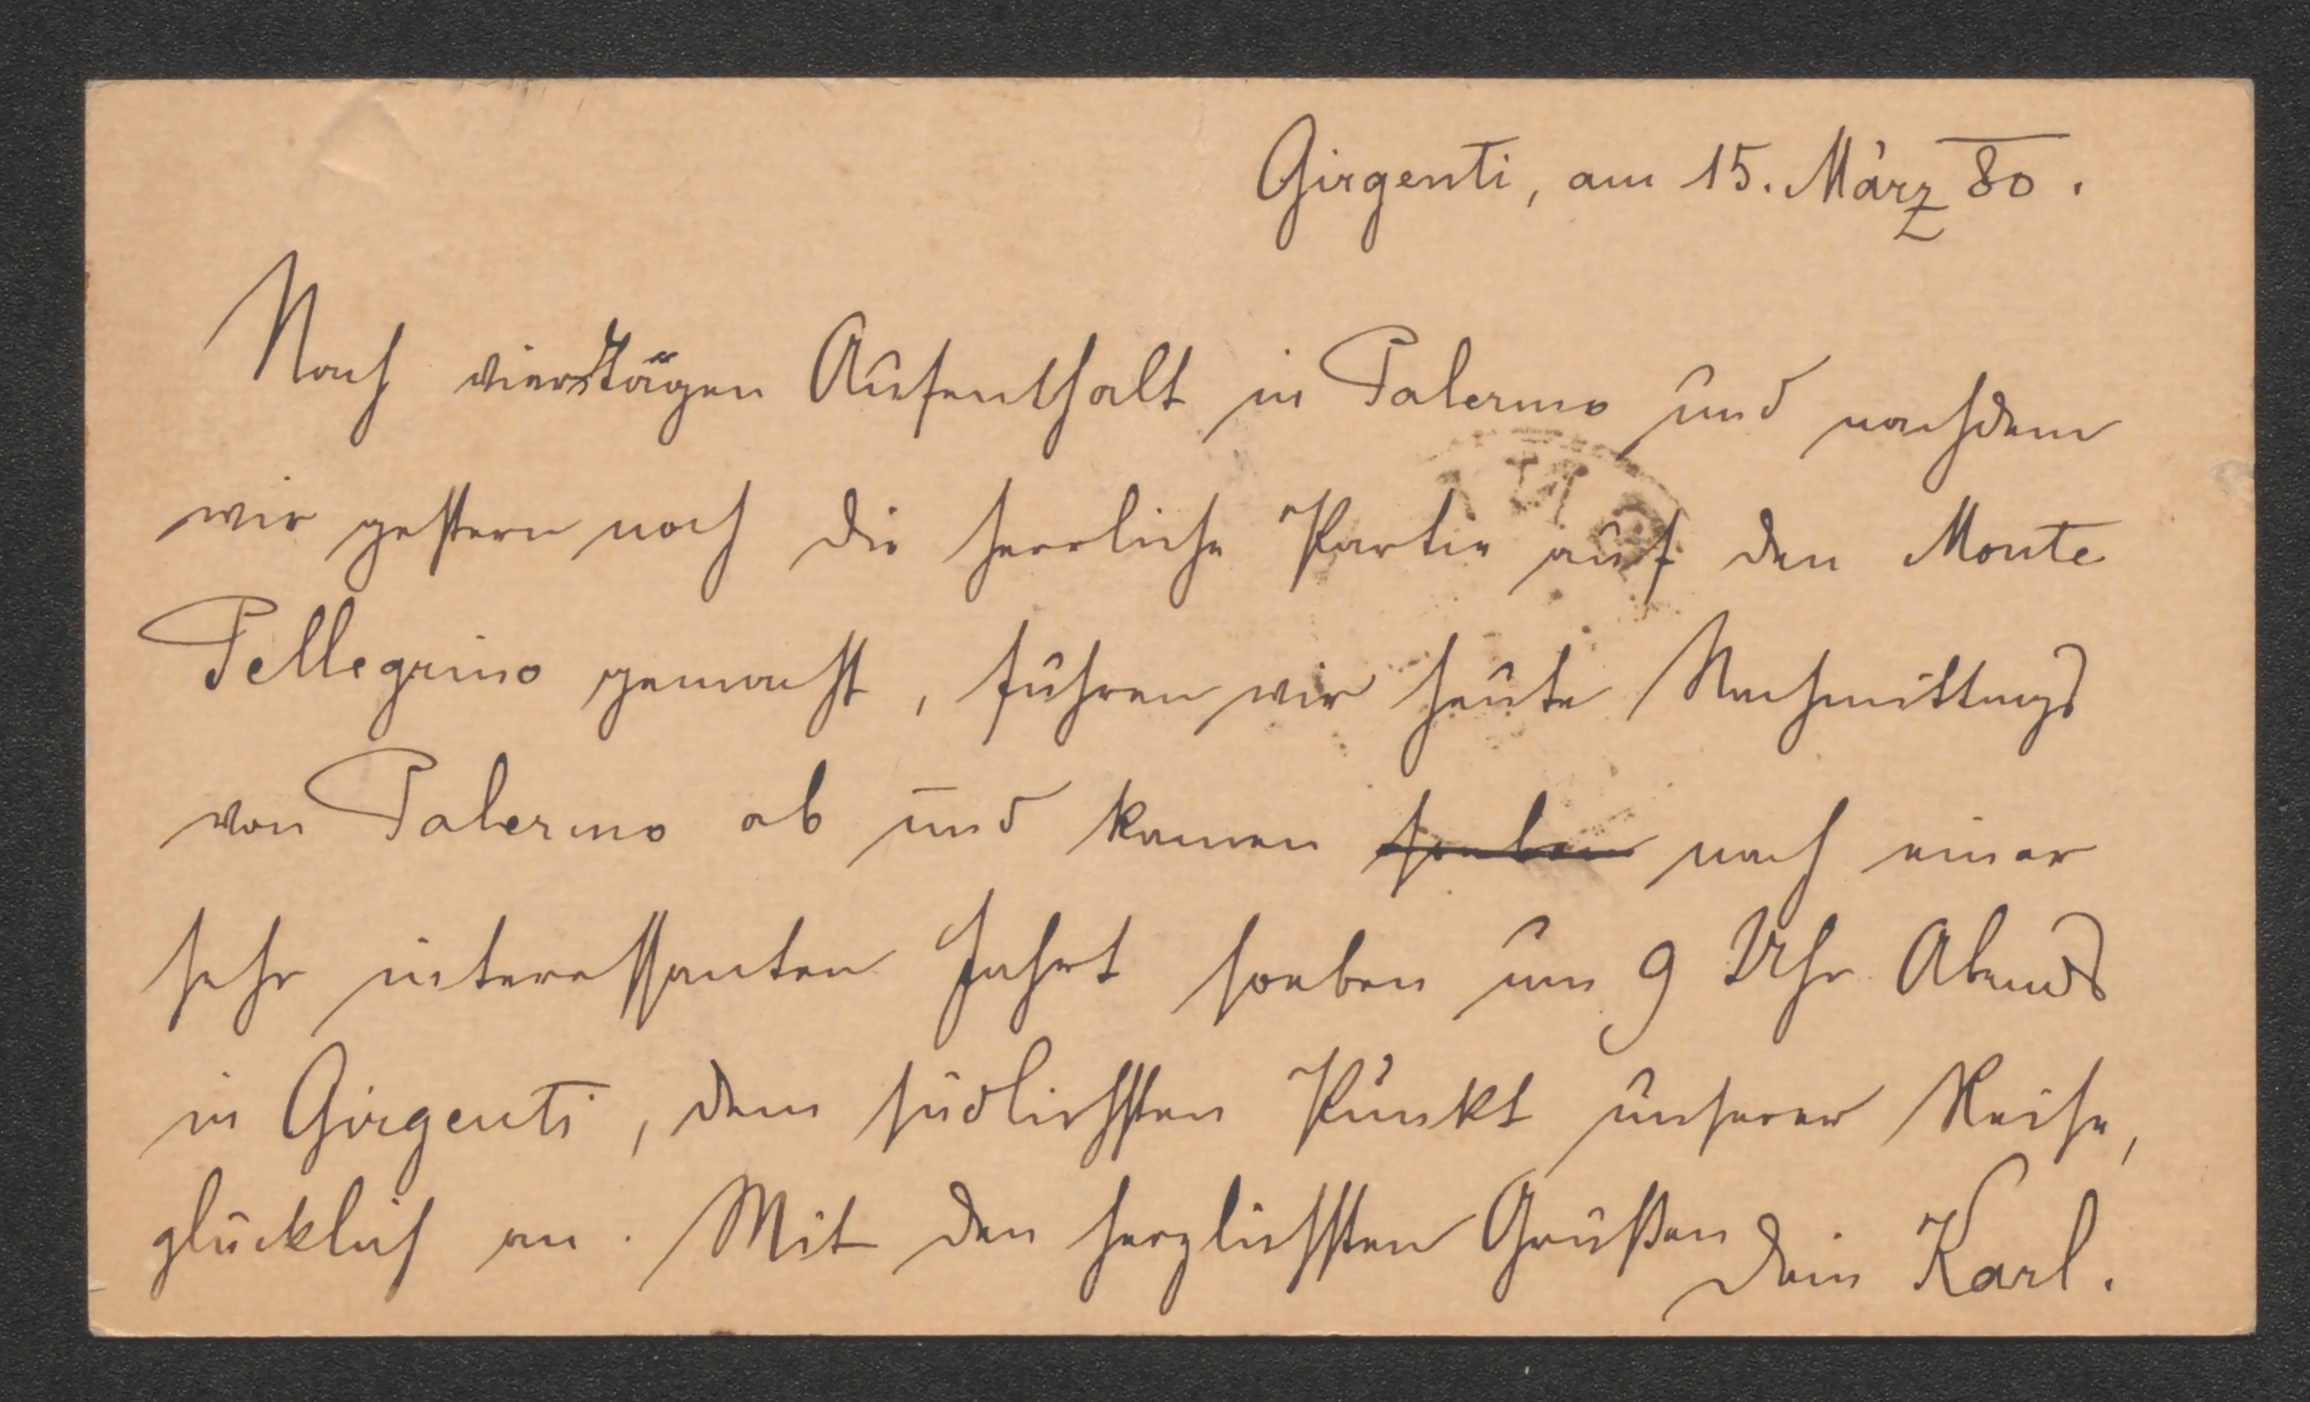 Girgenti, am 15. März 80.
Nach vierstägen Aufenthalt in Palermo und nachdem
wir gestern noch die herrliche Partie auf den Monte
Pellegrino gemacht, fuhren wir heute Nachmittags
von Palermo ab und kamen soeben nach einer
sehr interessanten Fahrt soeben um 9 Uhr Abends
in Girgenti, dem südlichsten Punkt unserer Reise,
glücklich an. Mit den herzlichsten Grüßen
Dein Karl.